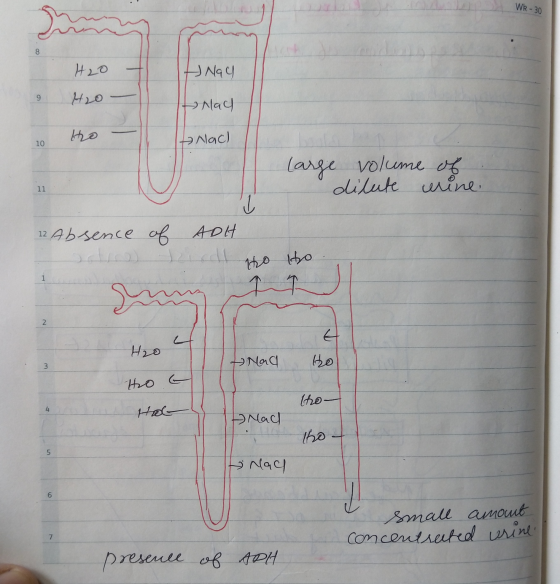 Wk - 30
8
H2O → NaCl
9
H2O → NaCl
10
H2O → NaCl
large volume of
dilute urine.
11
12
Absence of ADH
H2O H2O
1
2
H2O
H2O
3
NaCl
H2O
H2O
H2O
4
NaCl
H2O
5
NaCl
6
small amount
concentrated urine.
7
presence of ADH